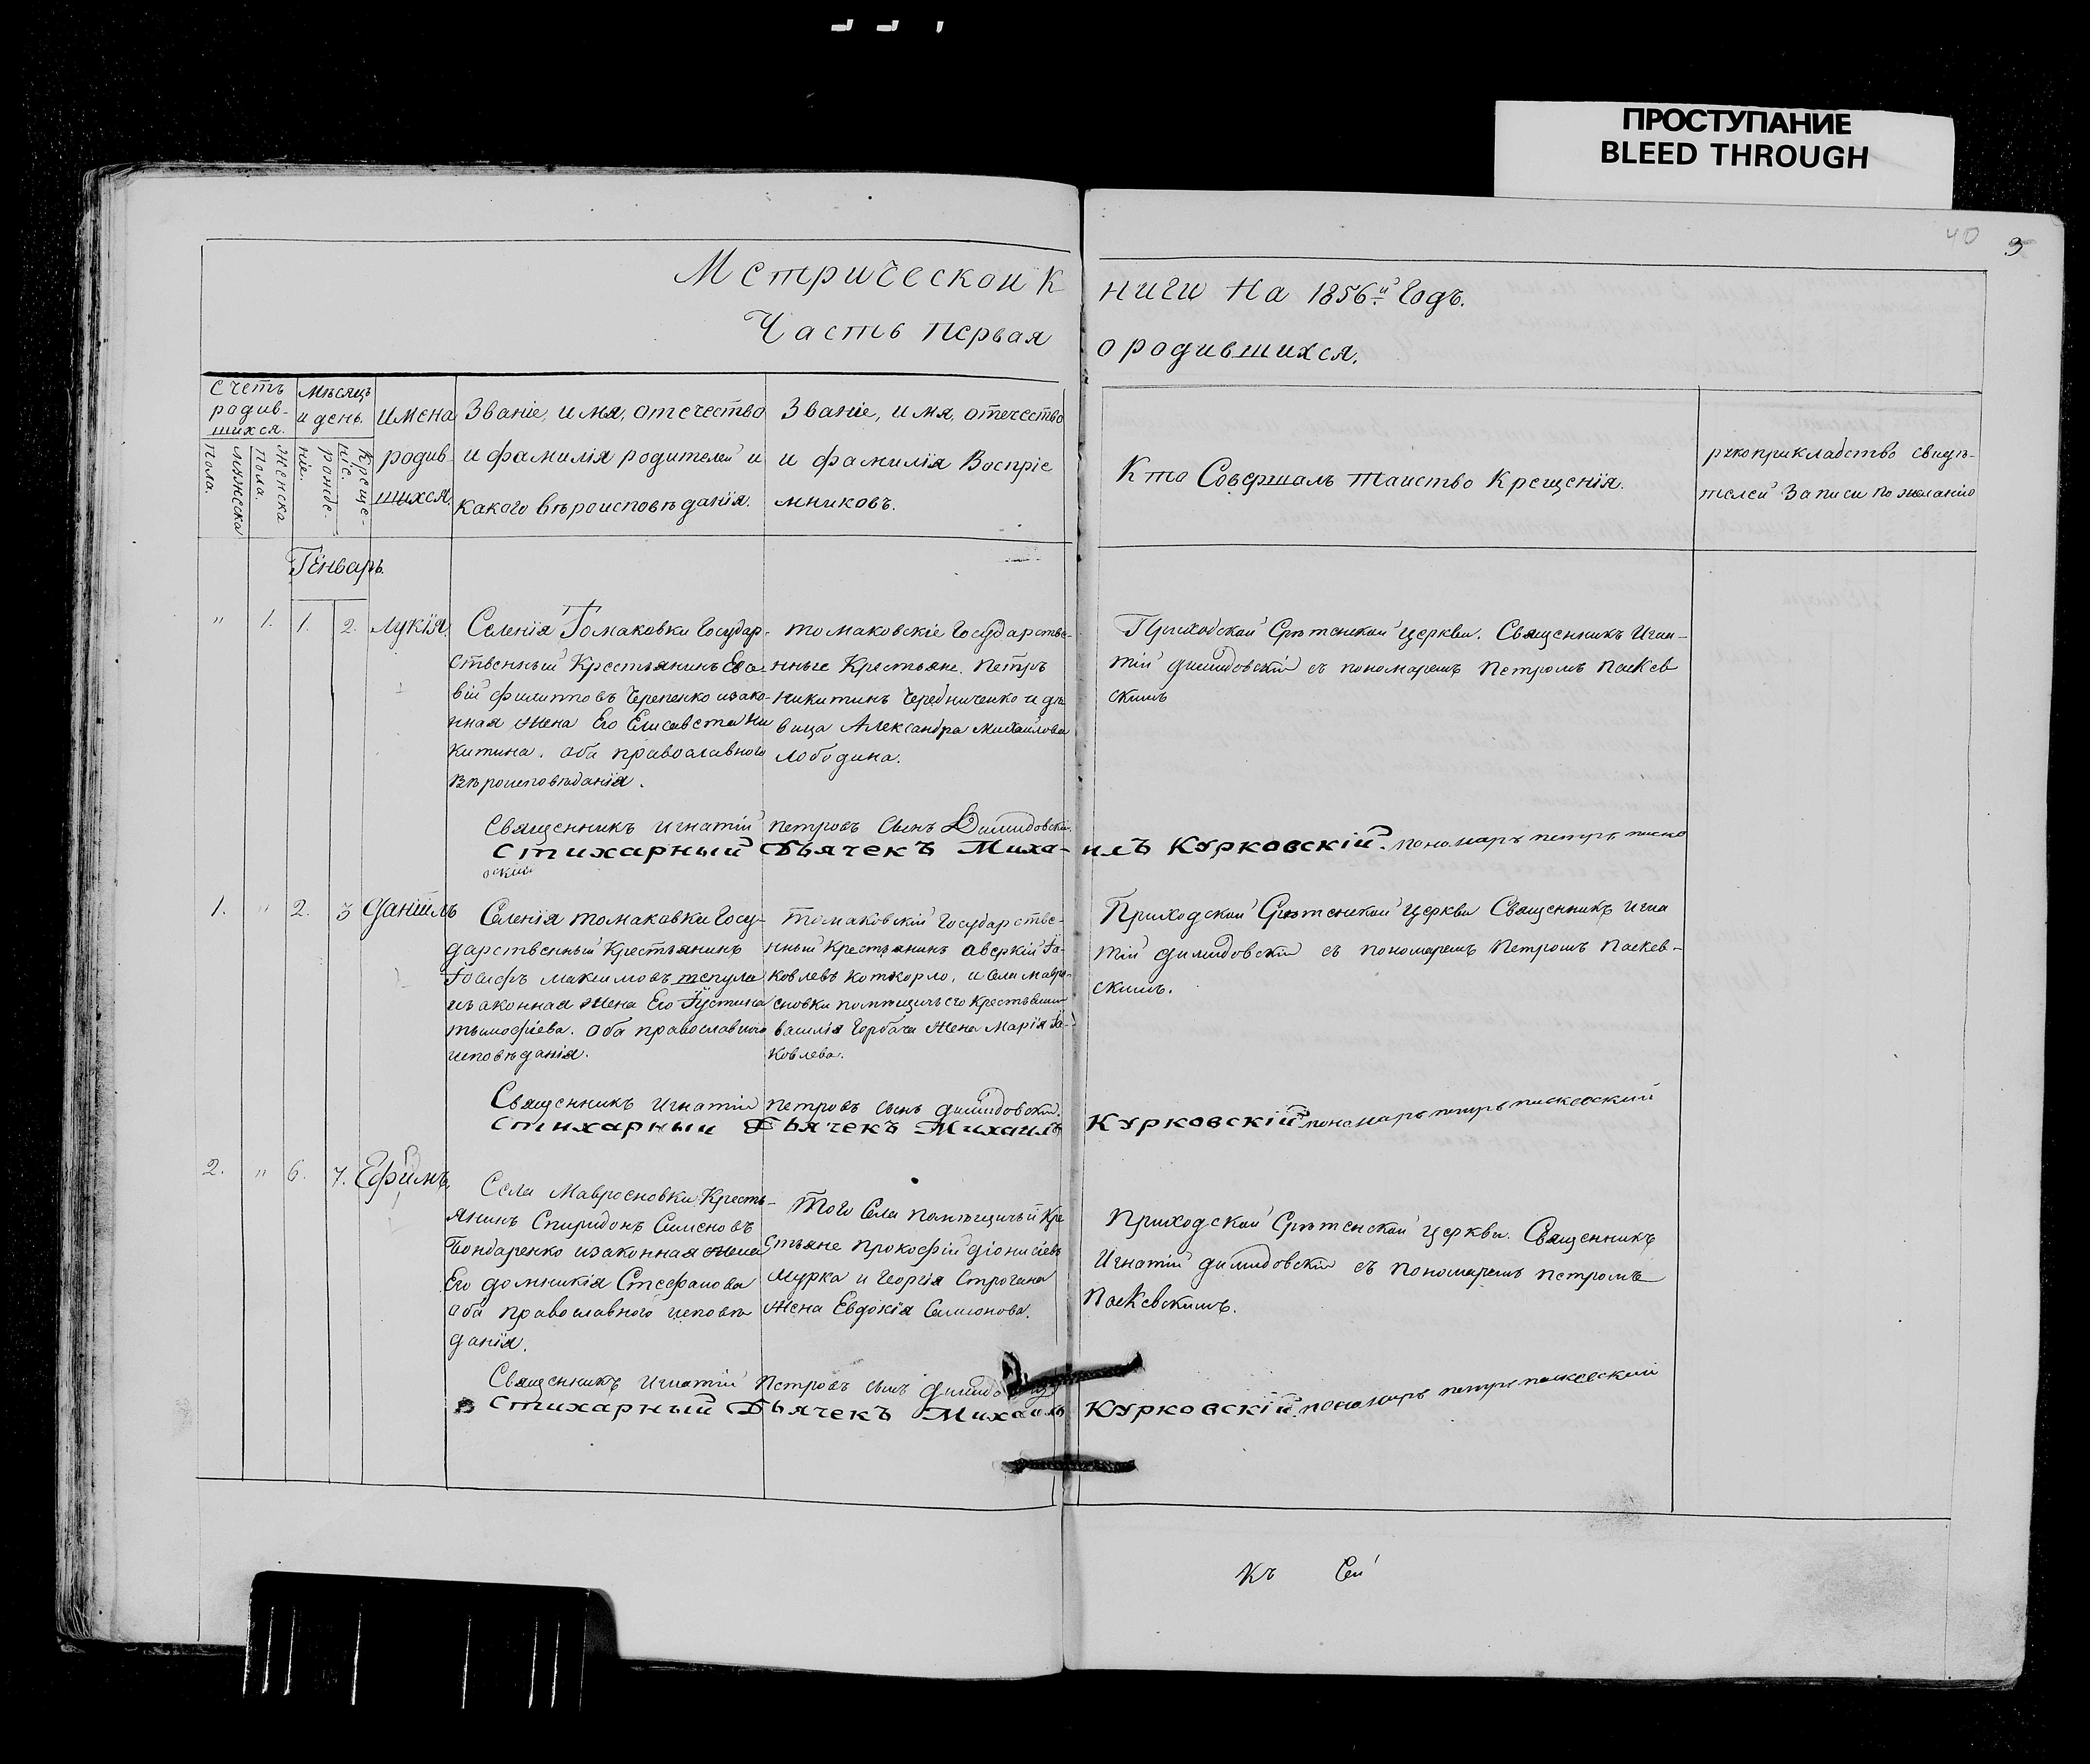 ПРОСТУПАНИЕ
BLEED THROUGH
40 3
Метрической книги на 1856й Годъ.
Часть первая о родившихся.
Счетъ родив-шихся.
мужеска пола.
женска пола.
Мѣсяцъ и день.
рожде-ніе.
креще-ніе.
имена
родив
шихся.
Званіе, имя, отечество
и фамилія родителей и
какого вѣроисповѣданія.
Званіе, имя, отечество
и фамилія Воспріе
мниковъ.
Кто Совершалъ таинство Крещенія.
рукоприкладство свидѣ-
телей записи по желанію
Генварь.
" 1. 1. 2. Лукія
Селенія Томаковки Государ-
ственный Крестьянинъ
вій филипповъ Черепенко и зако-
нная жена Его Елисавета Ни
китина. оба православного
вѣроисповѣданія.
томаковскіе Государстве-
нные Крестьяне. Петръ
Никитинъ Чередниченко и дѣ
вица Александра Михайлова
Лободина.
Приходской Срѣтенской церкви. Священникъ Игна-
тій димидовскій съ пономаремъ Петромъ Паскев
скимъ
Священникъ Игнатій Петровъ сынъ Димидовскій.
Стихарный Дьячекъ Миха-илъ Курковскій. пономарь петръ
1. " 2. 3 Даніилъ
Селенія томаковки Госу-
дарственный Крестьянинъ
Іосифъ максимовъ тепула
и законная жена Его Іустина
тимофіева. оба православного
исповѣданія.
томаковскій Государстве-
нный Крестьянинъ аверкій Іа-
ковлевъ Коткорло, и села маври-
сновки помѣщичьего крестьянина
василія Горбача жена Марія Іа-
ковлева.
Приходской Срѣтенской церкви Священникъ Игна
тій димидовскій съ пономаремъ Петромъ Паскев-
скимъ.
Священникъ Игнатій Петровъ сынъ димидовскій.
Стихарный Дьячекъ Михаилъ Курковскій пономарь петръ паскевский
2. " 6. 7. Ефимъ.
Села Мавросновки Кресть-
янинъ Спиридонъ Сименовъ
Бондаренко и законная жена
Его домникія Стефанова
оба православного исповѣ
данія.
Того Села помѣщичьи Кре
стьяне Прокофій діонисіевъ
Мурка и Георгія Строгана
жена Евдокія Симонова.
Приходской Срѣтенской церкви. Священникъ
Игнатій димидовскій съ пономаремъ петромъ
Паскевскимъ.
Священникъ Игнатій Петровъ сынъ
Стихарный Дьячекъ Михаилъ Курковскій. пономарь петръ паскевский
Къ Сей